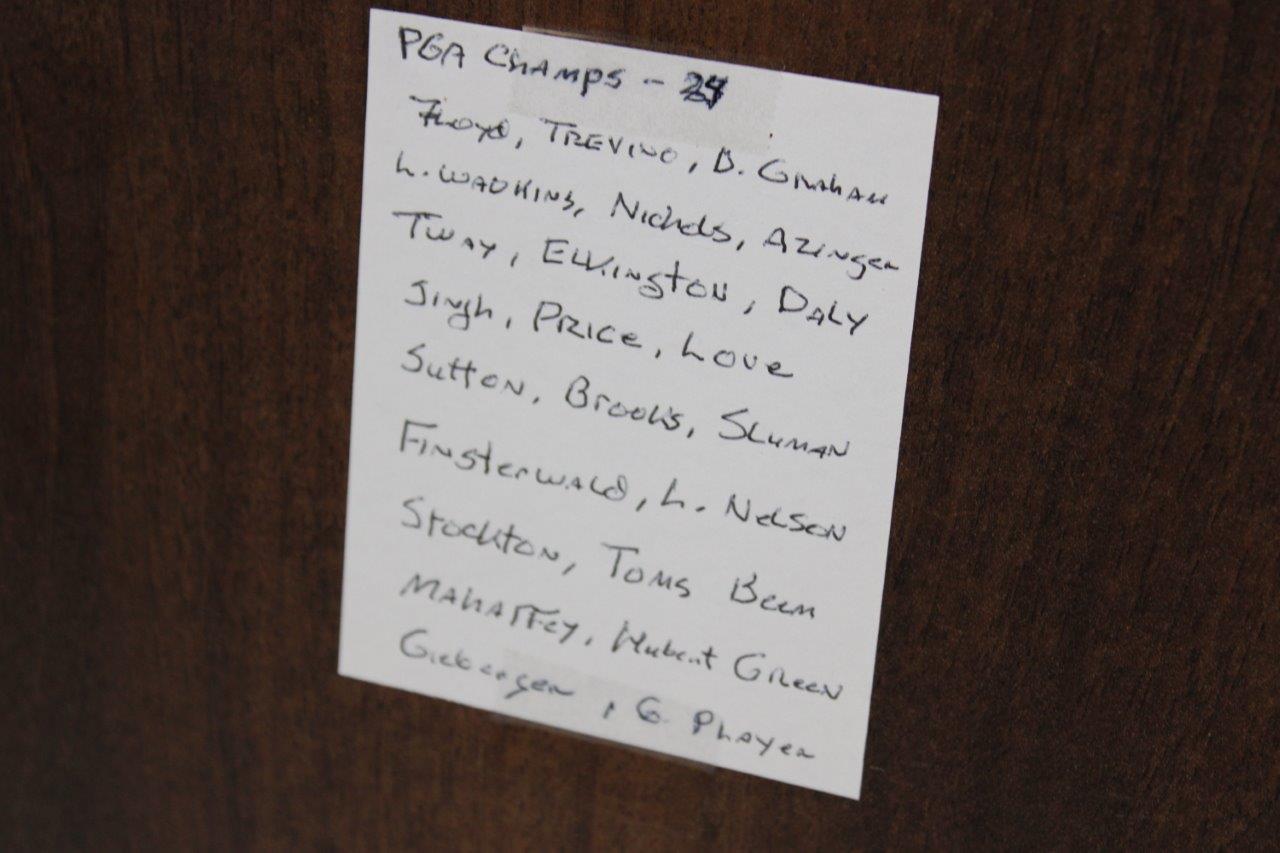 PGA CHAMPS -
Floyd, TREVINO, D. GRAHAM
L. WADKINS, Nichols, AZINGER
TWAY, ELKINGTON, DALY
SINGH, PRICE, LOVE
SUTTON, Brooks, SLUMAN
FINSTERWALD, L. NELSON
STOCKTON, TOMS BEEM
MAHAFFEY, Hubert GREEN
Geiberger, G. PLAYER